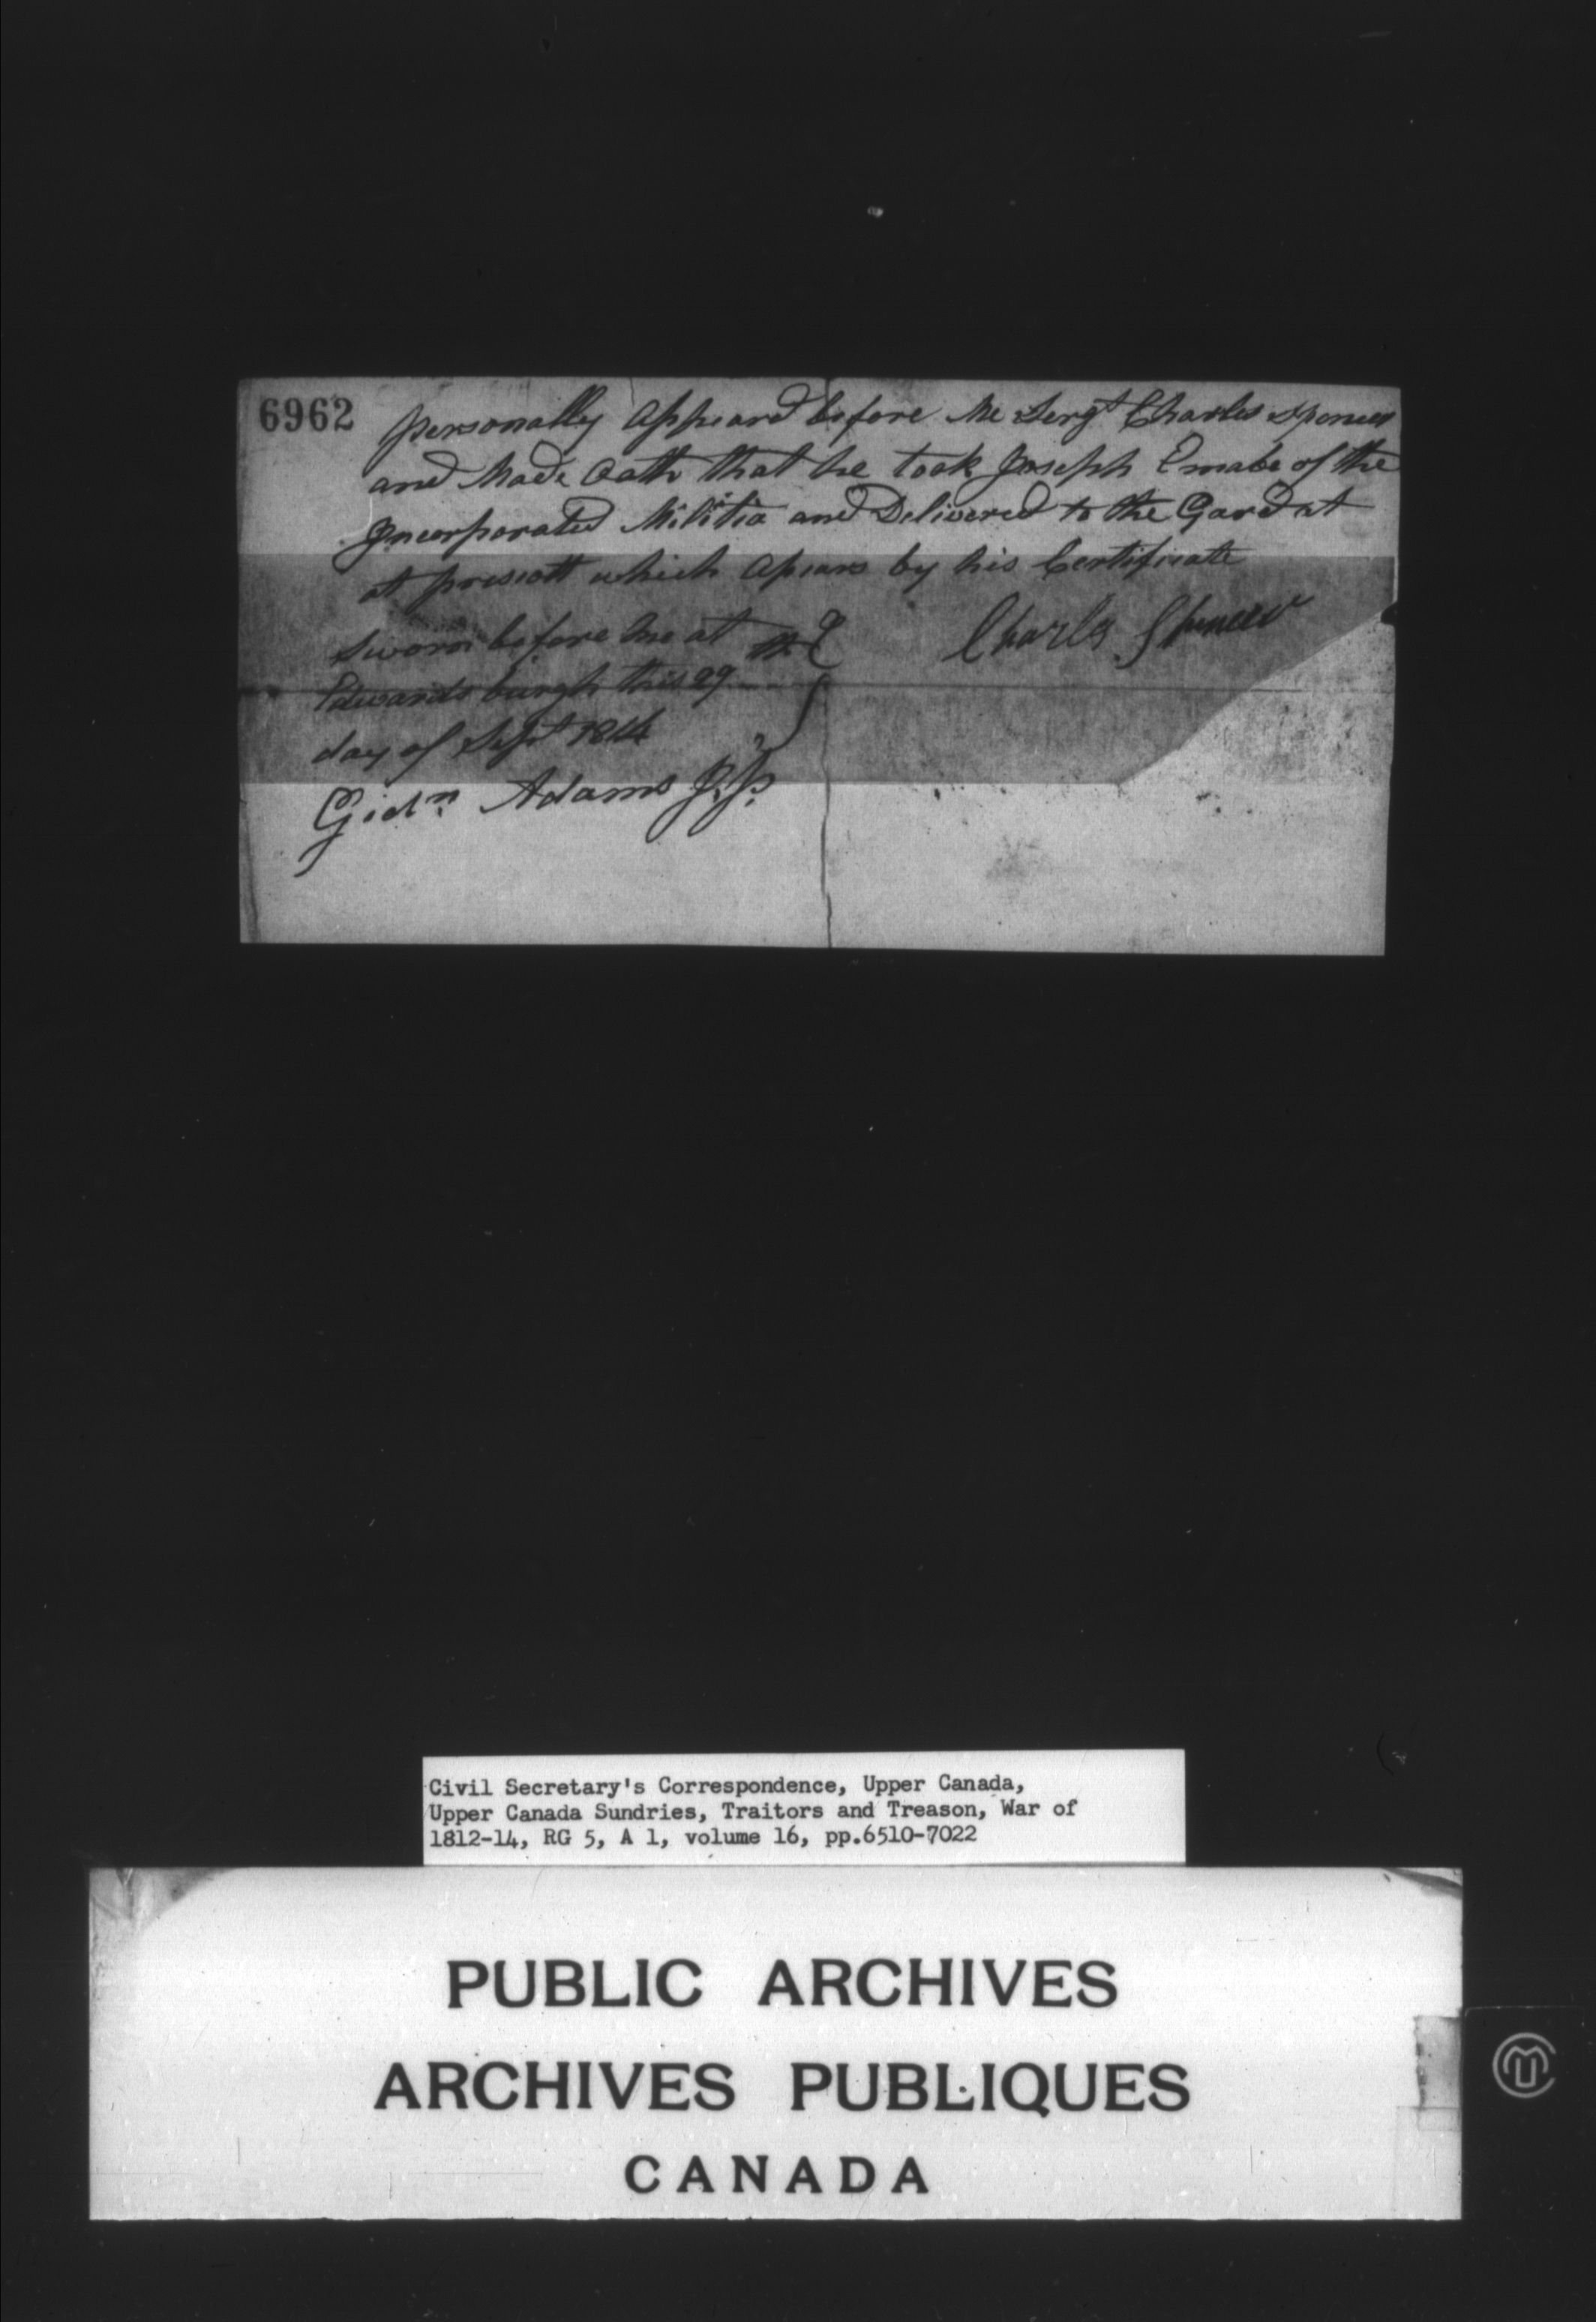 6962
personally appeard before Me Sergt Charles Spencer
and Made Oath that he took Joseph Emabe of the
Incorporated Militia and Delivered to the Gard at
at prescott which Apears by his Certificate
Sworn before me at
Edwardsburgh this 29
day of Sept 1814
Charles Spencer
Gidn Adams J.P.
Civil Secretary's Correspondence, Upper Canada,
Upper Canada Sundries, Traitors and Treason, War of
1812-14, RG 5, A 1, volume 16, pp.6510-7022
PUBLIC ARCHIVES
ARCHIVES PUBLIQUES
CANADA